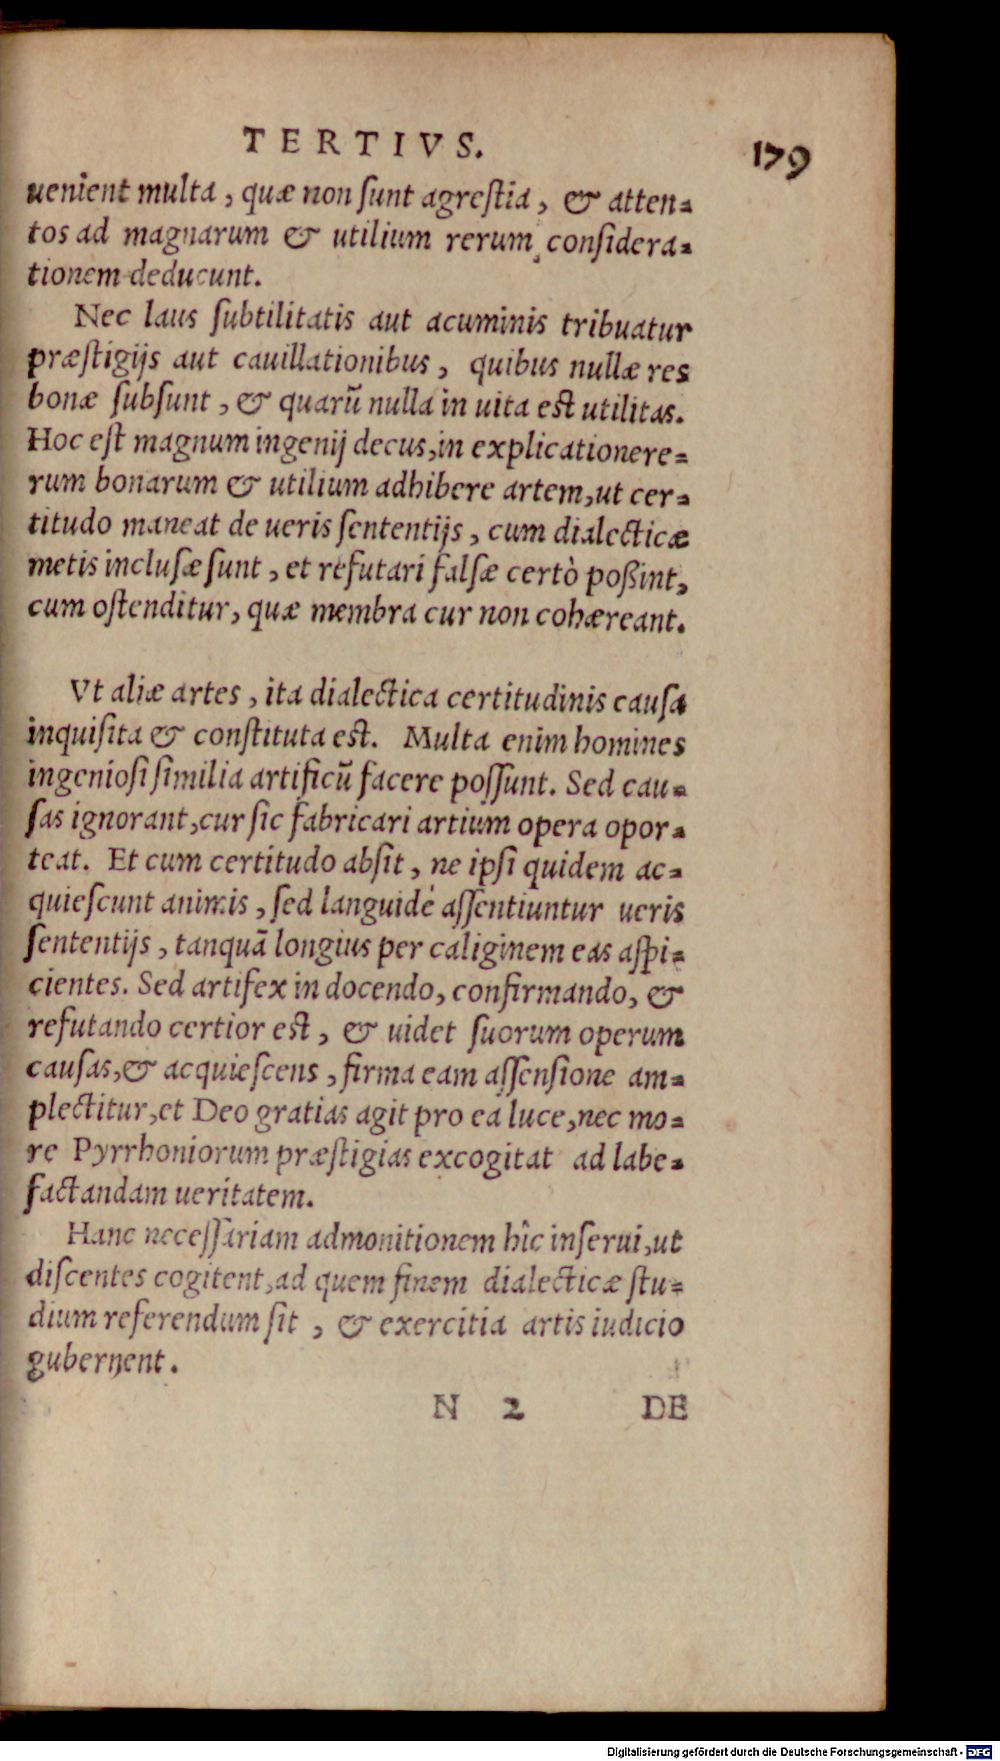 TERTIVS. 179
uenient multa, quæ non ſunt agreſtia, & atten-
tos ad magnarum & utilium rerum conſidera-
tionem deducunt.
Nec laus ſubtilitatis aut acuminis tribuatur
præſtigijs aut cauillationibus, quibus nullæ res
bonæ ſubſunt, & quarũ nulla in uita eſt utilitas.
Hoc eſt magnum ingenij decus, in explicatione re-
rum bonarum & utilium adhibere artem, ut cer-
titudo maneat de ueris ſententijs, cum dialecticæ
metis incluſæ ſunt, et refutari falſæ certò poßint,
cum oſtenditur, quæ membra cur non cohæreant.
Vt aliæ artes, ita dialectica certitudinis cauſa
inquiſita & conſtituta eſt. Multa enim homines
ingenioſi ſimilia artificũ facere poſſunt. Sed cau-
ſas ignorant, cur ſic fabricari artium opera opor-
teat. Et cum certitudo abſit, ne ipſi quidem ac-
quieſcunt animis, ſed languidé aſſentiuntur ueris
ſententijs, tanquã longius per caliginem eas aſpi-
cientes. Sed artifex in docendo, confirmando, &
refutando certior eſt, & uidet ſuorum operum
cauſas, & acquieſcens, firma eam aſſenſione am-
plectitur, et Deo gratias agit pro ea luce, nec mo-
re Pyrrhoniorum præſtigias excogitat ad labe-
factandam ueritatem.
Hanc neceſſariam admonitionem hîc inſerui, ut
diſcentes cogitent, ad quem finem dialecticæ ſtu-
dium referendum ſit, & exercitia artis iudicio
gubernent.
N 2 DE
Digitalisierung gefördert durch die Deutsche Forschungsgemeinschaft - DFG